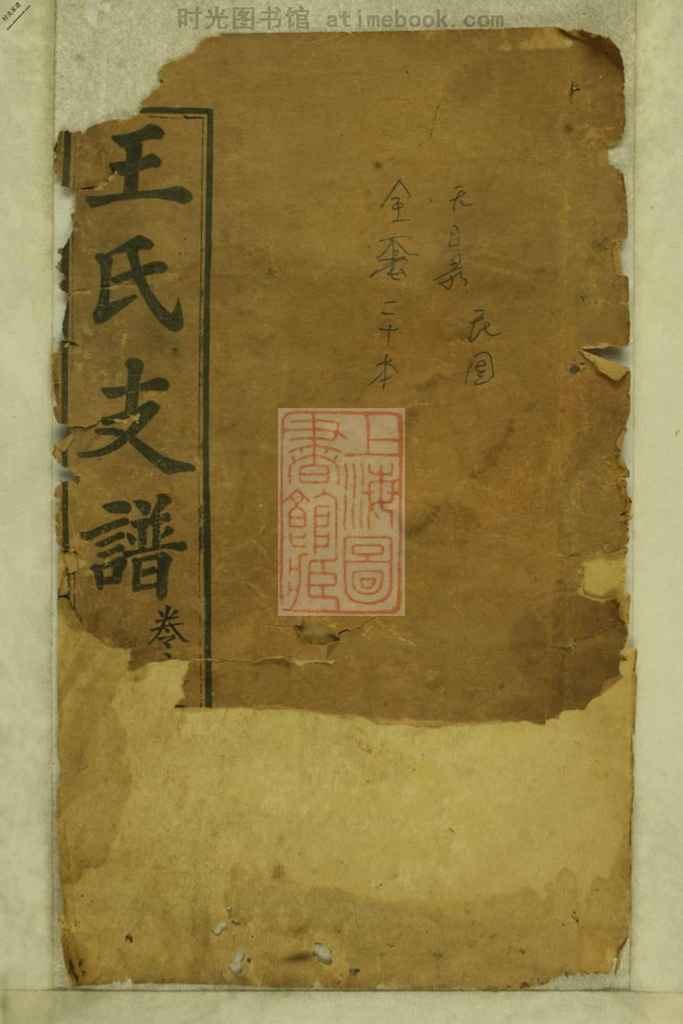 时光图书馆 atimebook.com
无目录 民国
全套二十本
上海圖
書館藏
王氏支譜
卷